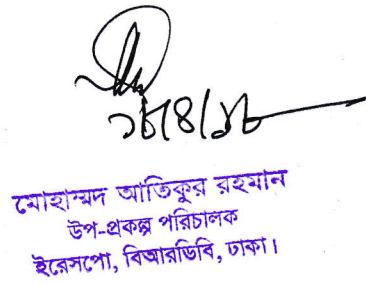 ১৮/৪/১৮
মোহাম্মদ আতিকুর রহমান
উপ-প্রকল্প পরিচালক
ইরেসপো, বিআরডিবি, ঢাকা।